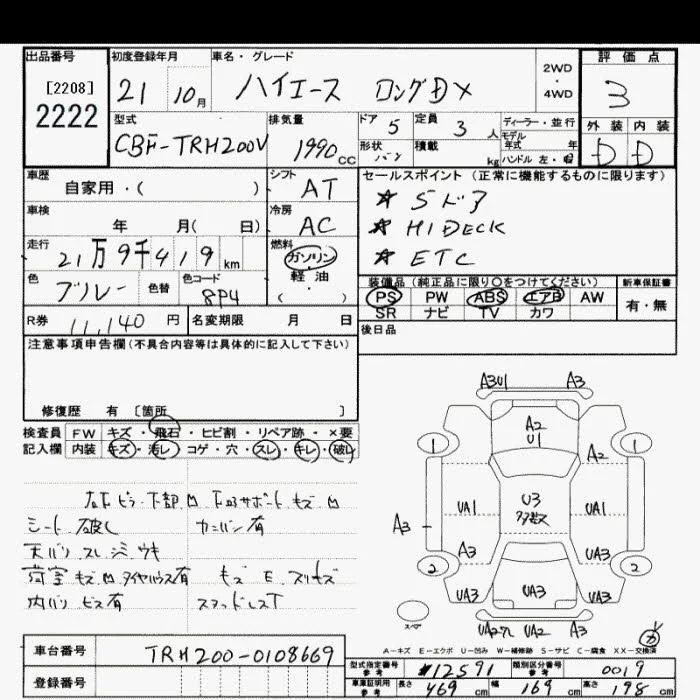 出品番号
[2208]
2222
初度登録年月
21 10月
車名・グレード
ハイエース ロングDX
2WD
・
4WD
評価点
3
外装 内装
D D
型式
CBF-TRH200V
排気量
1990cc
ドア 5
定員 3人
形状 バン
積載 kg
ディーラー・並行
モデル年式 年
ハンドル 左・
車歴
自家用・( )
シフト
AT
セールスポイント(正常に機能するものに限ります)
★ 5ドア
★ HIDECK
★ ETC
車検
年 月( 日)
冷房
AC
走行
21万9千419km
燃料
ガソリン
・
軽油
( ・ )
色
ブルー
色替
色コード
8P4
装備品(純正品に限り〇をつけてください)
PS PW ABS エアB AW
SR ナビ TV カワ
新車保証書
有・無
R券 11,140円
名変期限 月 日
後日品
注意事項申告欄(不具合内容等は具体的に記入して下さい)
修復歴 有 [箇所 ]
検査員 FW キズ・飛石・ヒビ割・リペア跡・×要
記入欄 内装 キズ・汚レ・コゲ・穴・スレ・キレ・破レ
シート 破レ カンバン有
天バリ スレ シミ ウキ
内バリ ビス有
A3U1 A3
A2
U1
1 1
A2
UA1 U3 UA1
多数
A3
A3 UA3
2 2
UA3 UA3 UA3
UA2 A3
スペア
A-キズ E-エクボ U-凹み W-補修跡 S-サビ C-腐食 XX-交換済
車台番号 TRH200-0108669
登録番号
型式指定番号 参考 #12591
類別区分番号 参考 0019
車庫証明用 参考 長さ 469cm 幅 169cm 高さ 198cm